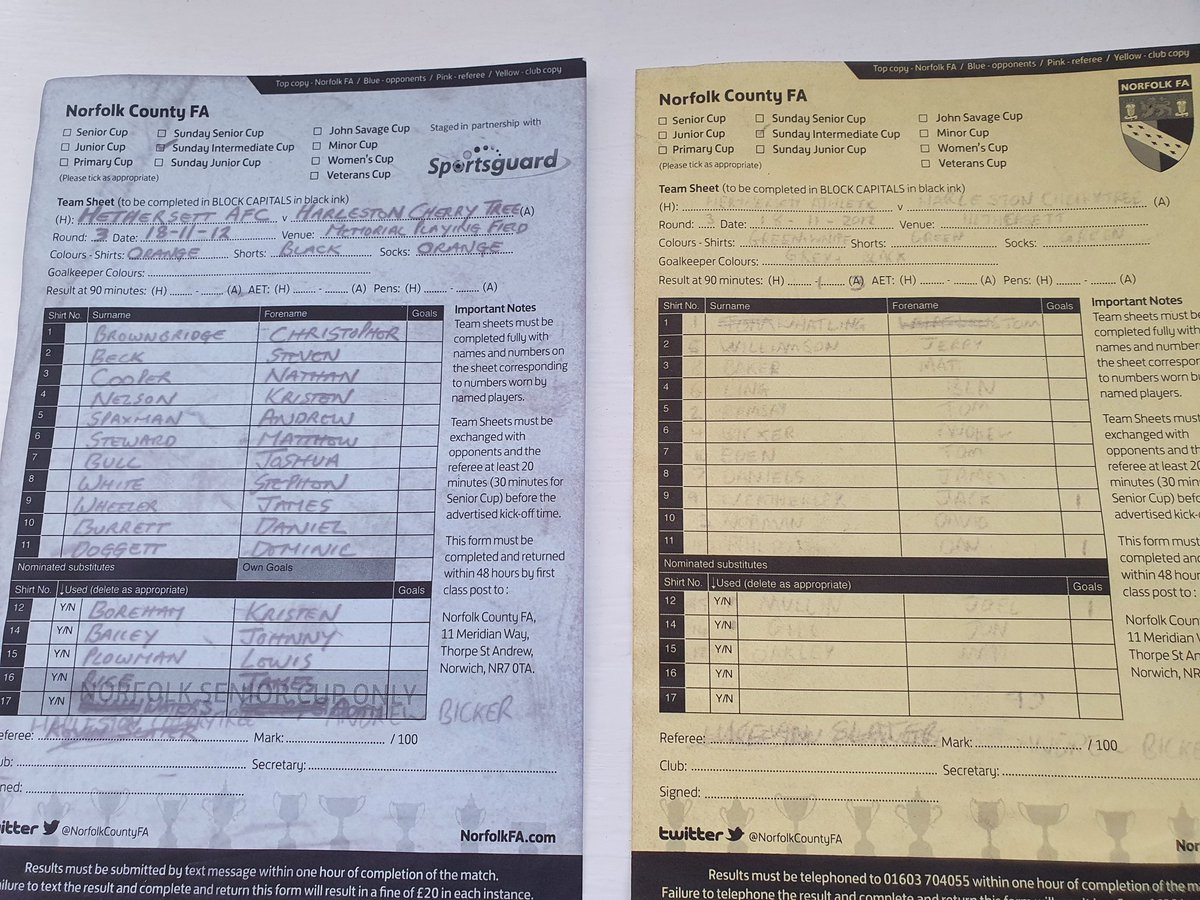 Top copy - Norfolk FA / Blue - opponents / Pink - referee / Yellow - club copy
Norfolk County FA
Senior Cup Sunday Senior Cup John Savage Cup
Junior Cup Sunday Intermediate Cup Minor Cup
Primary Cup Sunday Junior Cup Women's Cup
(Please tick as appropriate) Veterans Cup
Staged in partnership with
Sportsguard
Team Sheet (to be completed in BLOCK CAPITALS in black ink)
(H): HETHERSETT AFC v HARLESTON CHERRY TREE (A)
Round: 3 Date: 18-11-12 Venue: MEMORIAL PLAYING FIELD
Colours - Shirts: ORANGE Shorts: BLACK Socks: ORANGE
Goalkeeper Colours:
Result at 90 minutes: (H) - (A) AET: (H) - (A) Pens: (H) - (A)
Shirt No. Surname Forename Goals
1 BROWNBRIDGE CHRISTOPHER
2 BECK STEVEN
3 COOPER NATHAN
4 NELSON KRISTEN
5 SPAXMAN ANDREW
6 STEWARD MATTHEW
7 BULL JOSHUA
8 WHITE STEPHON
9 WHEELER JAMES
10 BURRETT DANIEL
11 DOGGETT DOMINIC
Nominated substitutes Own Goals
Shirt No. ↓Used (delete as appropriate) Goals
12 Y/N BOREHAM KRISTEN
14 Y/N BAILEY JOHNNY
15 Y/N PLOWMAN LOWIS
16 Y/N RICE JAMES
17 Y/N
NORFOLK SENIOR CUP ONLY
HARLESTON CHERRYTREE BICKER
eferee: Mark: / 100
ub: Secretary:
ned:
Important Notes
Team sheets must be
completed fully with
names and numbers on
the sheet corresponding
to numbers worn by
named players.
Team Sheets must be
exchanged with
opponents and the
referee at least 20
minutes (30 minutes for
Senior Cup) before the
advertised kick-off time.
This form must be
completed and returned
within 48 hours by first
class post to :
Norfolk County FA,
11 Meridian Way,
Thorpe St Andrew,
Norwich, NR7 0TA.
itter @NorfolkCountyFA NorfolkFA.com
Results must be submitted by text message within one hour of completion of the match.
ailure to text the result and complete and return this form will result in a fine of £20 in each instance.
Top copy - Norfolk FA / Blue - opponents / Pink - referee / Yellow - club copy
NORFOLK FA
Norfolk County FA
Senior Cup Sunday Senior Cup John Savage Cup
Junior Cup Sunday Intermediate Cup Minor Cup
Primary Cup Sunday Junior Cup Women's Cup
(Please tick as appropriate) Veterans Cup
Team Sheet (to be completed in BLOCK CAPITALS in black ink)
(H): v HARLESTON CHERRYTREE (A)
Round: 3 Date: 18-11-2012 Venue: HETHERSETT
Colours - Shirts: GREEN/WHITE Shorts: GREEN Socks: GREEN
Goalkeeper Colours:
Result at 90 minutes: (H) 1 - (A) 3 AET: (H) - (A) Pens: (H) - (A)
Shirt No. Surname Forename Goals
1 1 WHATLING TOM
2 WILLIAMSON JERRY
3 BAKER MAT
4 LING BEN
5 2 TOM
6
7 EDEN TOM
8 7 DANIELS JAMES
9 9 JACK 1
10 NORMAN DAVID
11 DAN 1
Nominated substitutes
Shirt No. ↓Used (delete as appropriate) Goals
12 Y/N MULLIN JOEL 1
14 Y/N GILL JON
15 Y/N OAKLEY
16 Y/N
17 Y/N
Referee: SLATER Mark: BICKER / 100
Club: Secretary:
Signed:
Important Notes
Team sheets must be
completed fully with
names and numbers
the sheet correspon
to numbers worn by
named players.
Team Sheets must
exchanged with
opponents and the
referee at least 20
minutes (30 min
Senior Cup) befor
advertised kick-o
This form must
completed and
within 48 hours
class post to :
Norfolk Coun
11 Meridian W
Thorpe St An
Norwich, NR
twitter @NorfolkCountyFA Nor
Results must be telephoned to 01603 704055 within one hour of completion of the ma
Failure to telephone the result and complete and return this form will